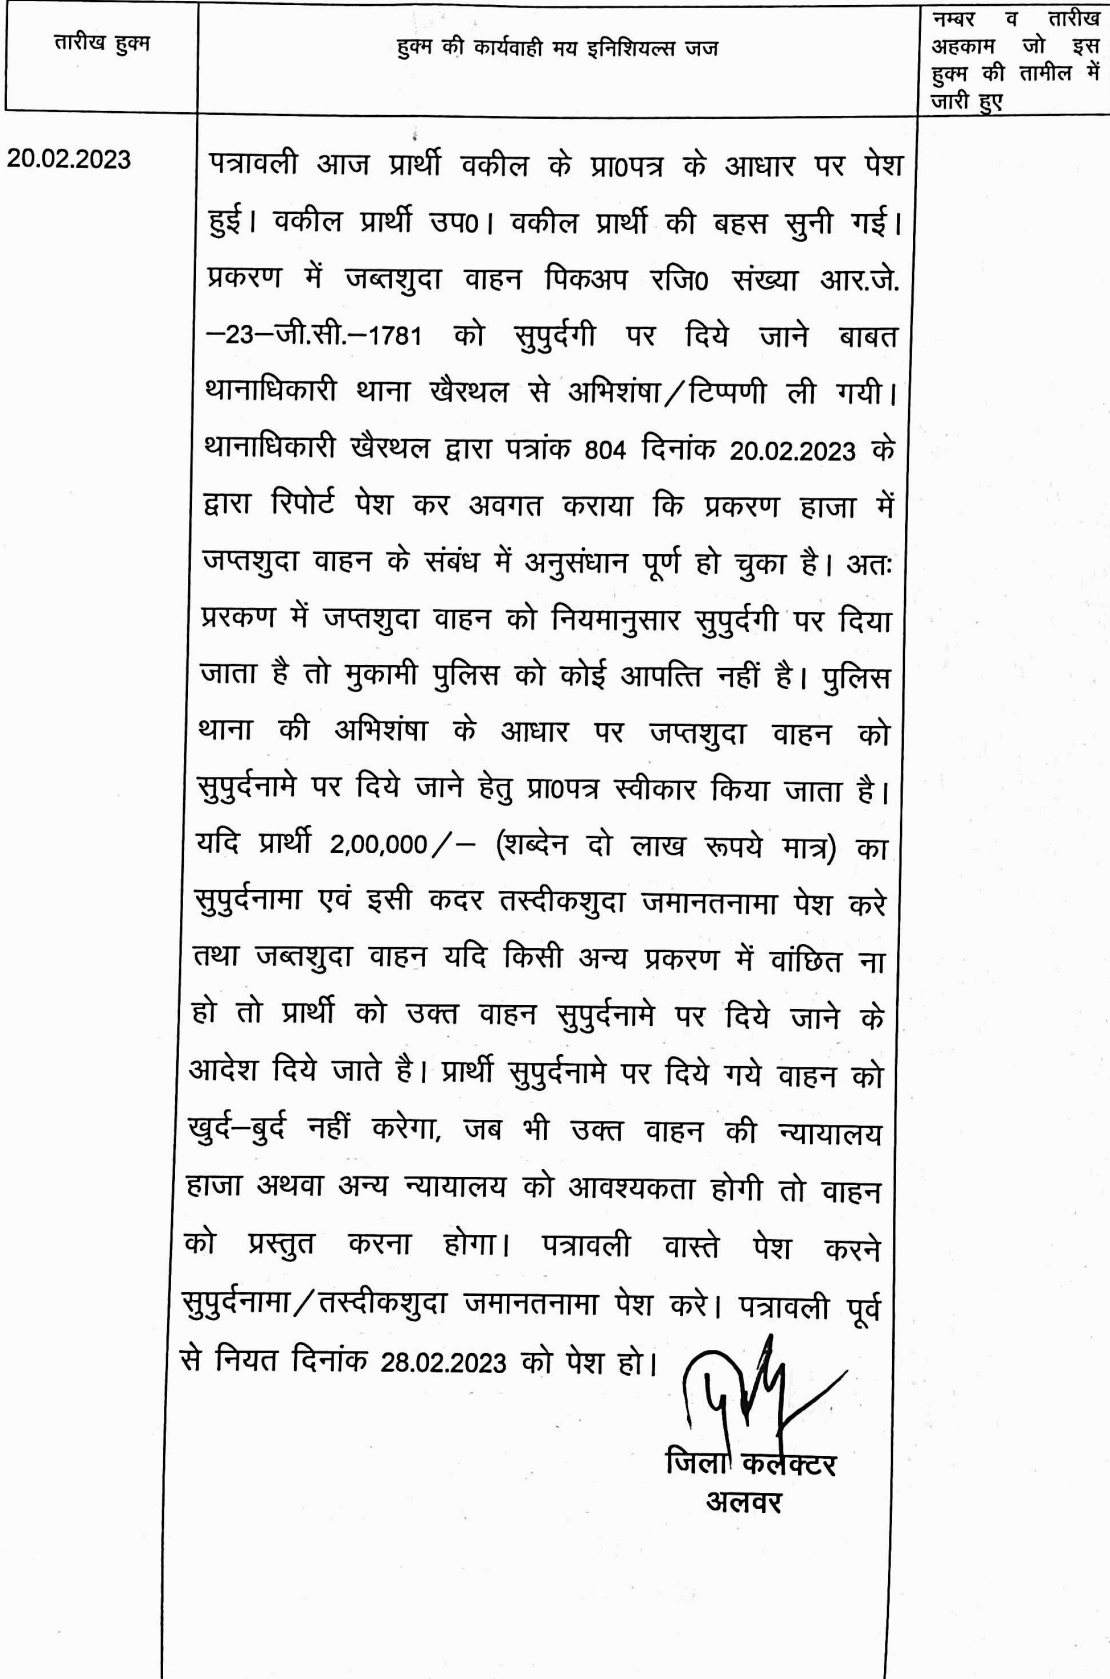 तारीख हुक्म
हुक्म की कार्यवाही मय इनिशियल्स जज
नम्बर व तारीख
अहकाम जो इस
हुक्म की तामील में
जारी हुए
20.02.2023
पत्रावली आज प्रार्थी वकील के प्रा0पत्र के आधार पर पेश
हुई। वकील प्रार्थी उप0। वकील प्रार्थी की बहस सुनी गई।
प्रकरण में जब्तशुदा वाहन पिकअप रजि0 संख्या आर.जे.
–23–जी.सी.–1781 को सुपुर्दगी पर दिये जाने बाबत
थानाधिकारी थाना खैरथल से अभिशंषा/टिप्पणी ली गयी।
थानाधिकारी खैरथल द्वारा पत्रांक 804 दिनांक 20.02.2023 के
द्वारा रिपोर्ट पेश कर अवगत कराया कि प्रकरण हाजा में
जप्तशुदा वाहन के संबंध में अनुसंधान पूर्ण हो चुका है। अतः
प्ररकण में जप्तशुदा वाहन को नियमानुसार सुपुर्दगी पर दिया
जाता है तो मुकामी पुलिस को कोई आपत्ति नहीं है। पुलिस
थाना की अभिशंषा के आधार पर जप्तशुदा वाहन को
सुपुर्दनामे पर दिये जाने हेतु प्रा0पत्र स्वीकार किया जाता है।
यदि प्रार्थी 2,00,000/– (शब्देन दो लाख रूपये मात्र) का
सुपुर्दनामा एवं इसी कदर तस्दीकशुदा जमानतनामा पेश करे
तथा जब्तशुदा वाहन यदि किसी अन्य प्रकरण में वांछित ना
हो तो प्रार्थी को उक्त वाहन सुपुर्दनामे पर दिये जाने के
आदेश दिये जाते है। प्रार्थी सुपुर्दनामे पर दिये गये वाहन को
खुर्द–बुर्द नहीं करेगा, जब भी उक्त वाहन की न्यायालय
हाजा अथवा अन्य न्यायालय को आवश्यकता होगी तो वाहन
को प्रस्तुत करना होगा। पत्रावली वास्ते पेश करने
सुपुर्दनामा/तस्दीकशुदा जमानतनामा पेश करे। पत्रावली पूर्व
से नियत दिनांक 28.02.2023 को पेश हो।
जिला कलक्टर
अलवर